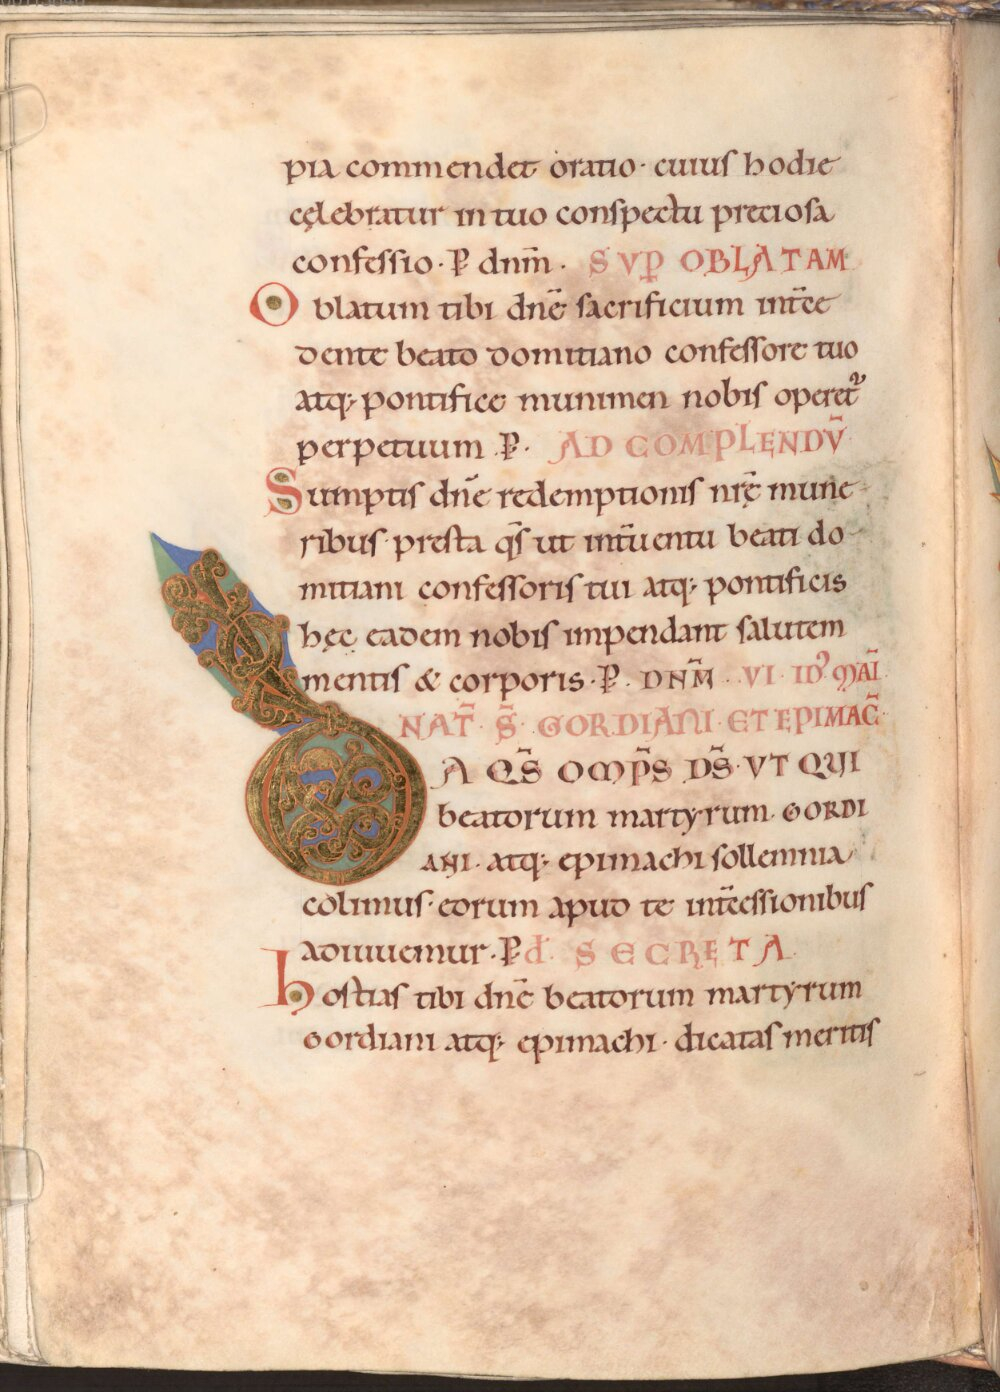 pia commendet oratio · cuius hodie
cęlebratur in tuo conspectu preciosa
confessio · P̱ dnm̄ · SVP̱ OBLATAM
Oblatum tibi dnē sacrificium int̄ce
dente beato domitiano confessore tuo
atq; pontifice munimen nobis operet᷑
perpetuum P̱ · AD COMPLENDV̄
Sumptis dnē redemptionis nrę̄ mune
ribus · presta q̄s ut int̄uentu beati do
mitiani confessoris tui atq; pontificis
hęc eadem nobis impendant salutem
mentis & corporis · P̱ · DNM̄ · VI · ID᾽ MAĪ
NAT̄ · S̄ · GORDIANI · ET EPIMAC̄
DA QS̄ OMP̄S DS̄ · VT QUI
beatorum martyrum · GORDI
ANI · atq; epimachi sollemnia
colimus · eorum apud te int̄cessionibus
adiuuemur · P̱ d̄ · SECRETA
hostias tibi dnē beatorum martyrum
Gordiani atq; epimachi · dicatas meritis